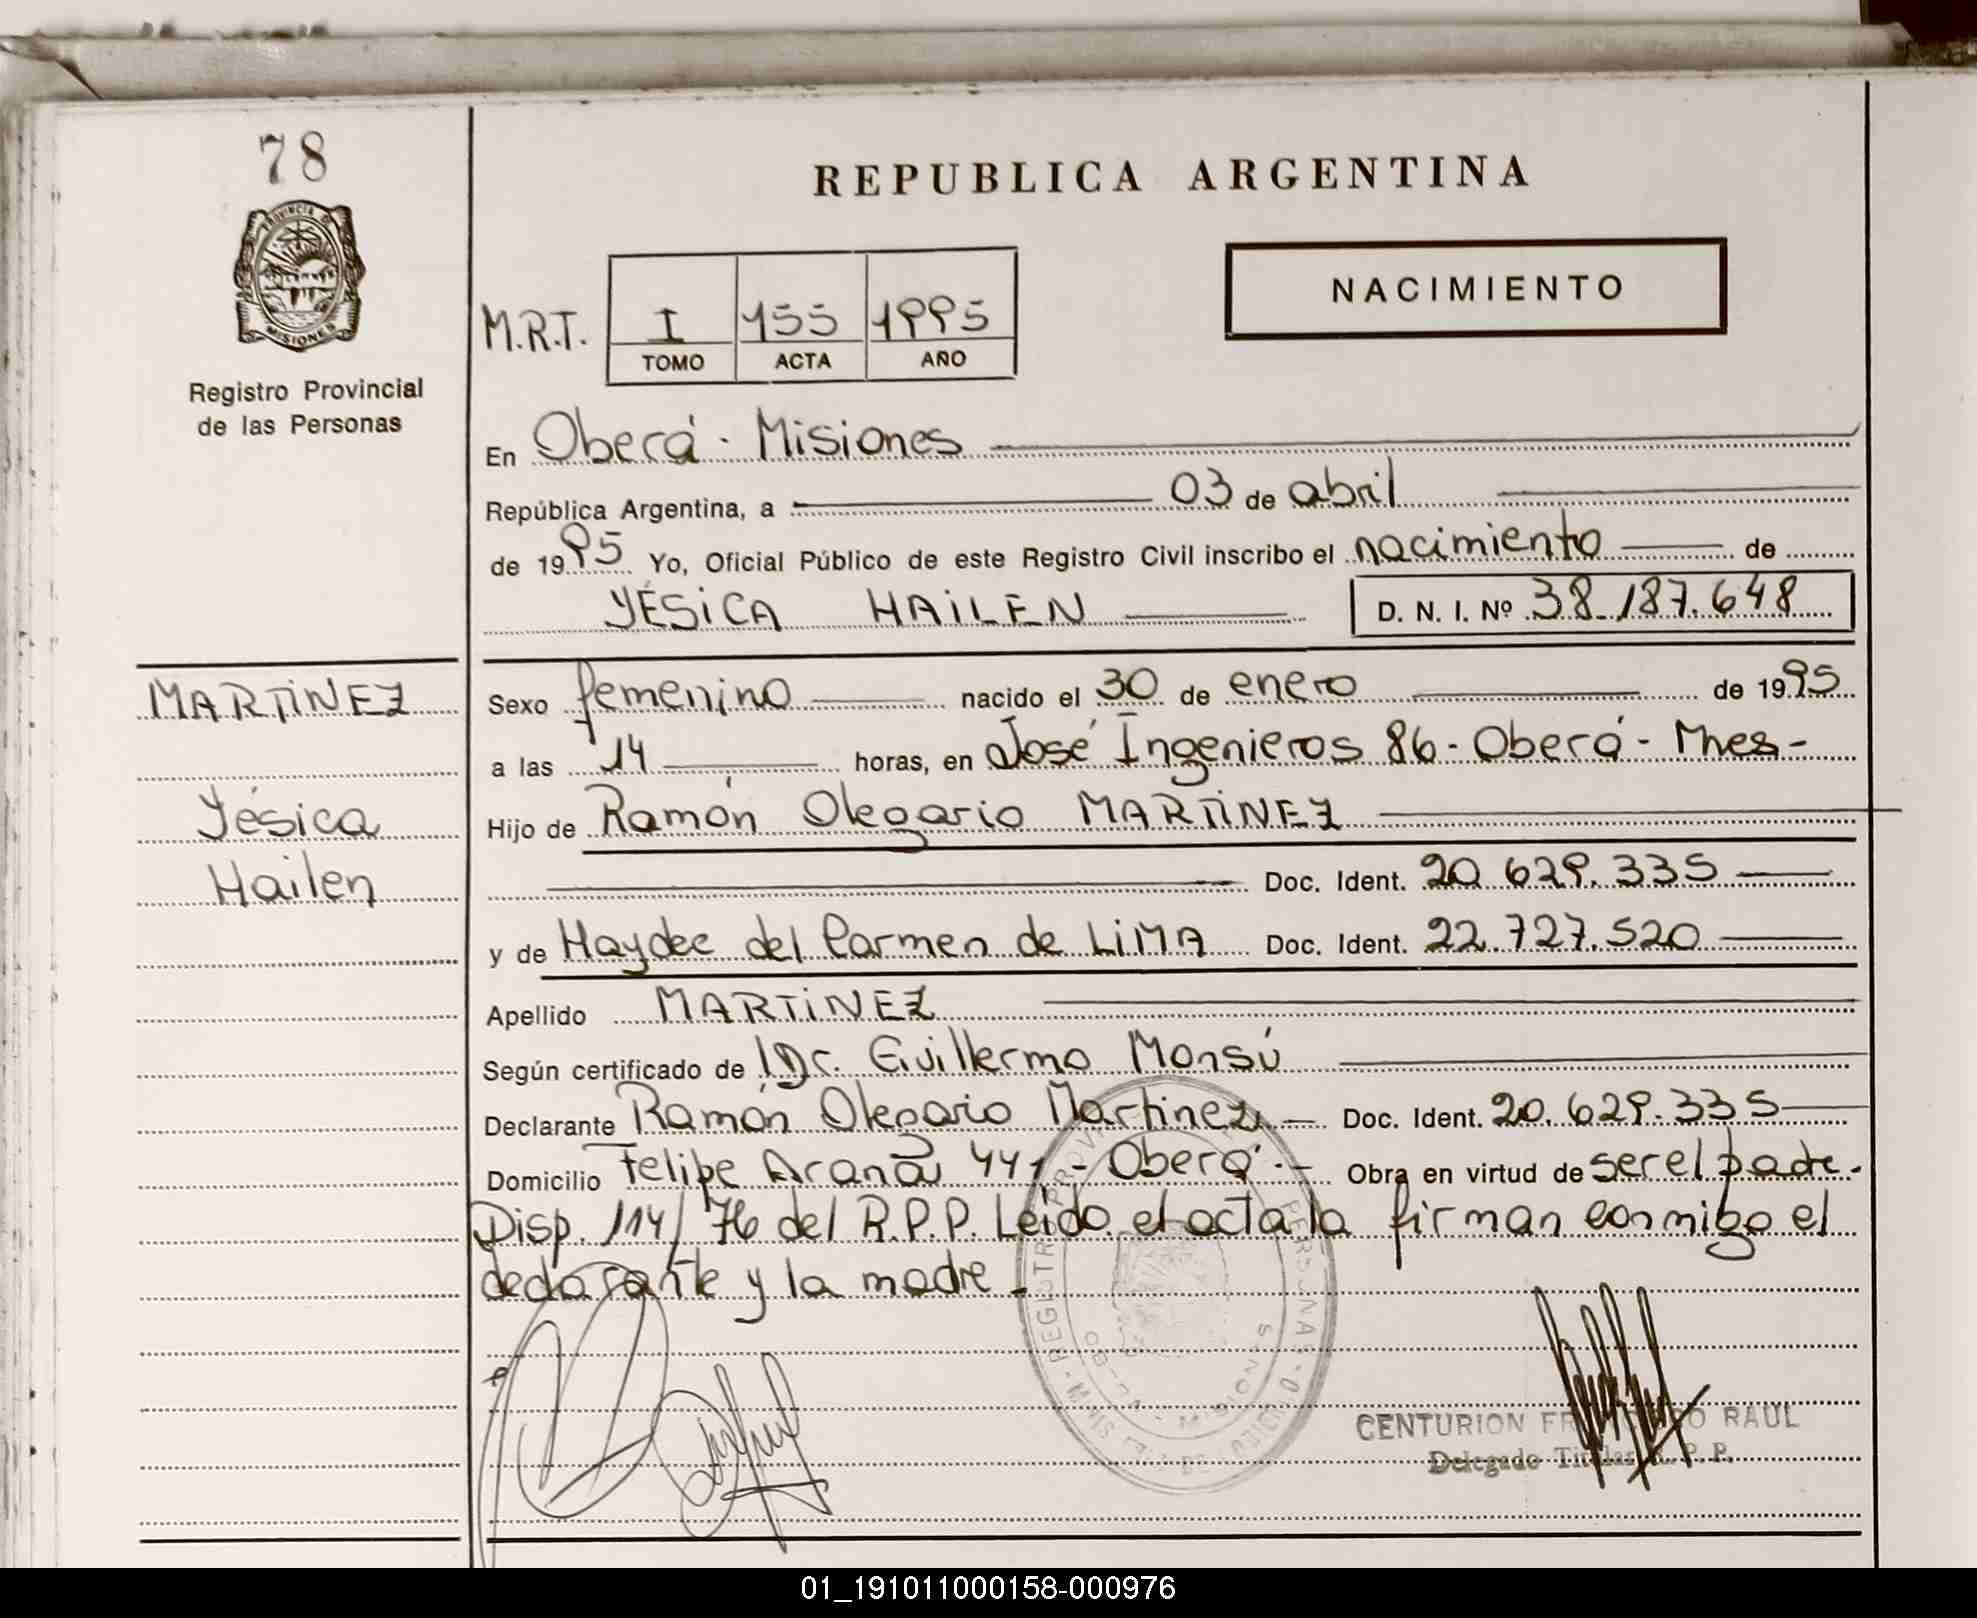 78
PROVINCIA D
MISIONES
Registro Provincial
de las Personas
REPUBLICA ARGENTINA
NACIMIENTO
M.R.T. I 155 1995
TOMO ACTA AÑO
En Oberá - Misiones
República Argentina, a 03 de abril
de 1995 Yo, Oficial Público de este Registro Civil inscribo el nacimiento de
YÉSICA HAILEN D. N. I. Nº 38.187.648
MARTINEZ
Yésica
Hailen
Sexo femenino nacido el 30 de enero de 1995
a las 14 horas, en José Ingenieros 86 - Oberá - Mnes -
Hijo de Ramón Olegario MARTINEZ
Doc. Ident. 20.629.335
y de Haydee del Carmen de LIMA Doc. Ident. 22.727.520
Apellido MARTINEZ
Según certificado de Dr. Guillermo Monsú
Declarante Ramón Olegario Martinez Doc. Ident. 20.629.335
Domicilio Felipe Arana 441 - Oberá - Obra en virtud de ser el padre.
Disp. 114/76 del R.P.P. Leído el acta la firman conmigo el
declarante y la madre.
CENTURION RAUL
Delegado Titular R. P. P.
01_191011000158-000976